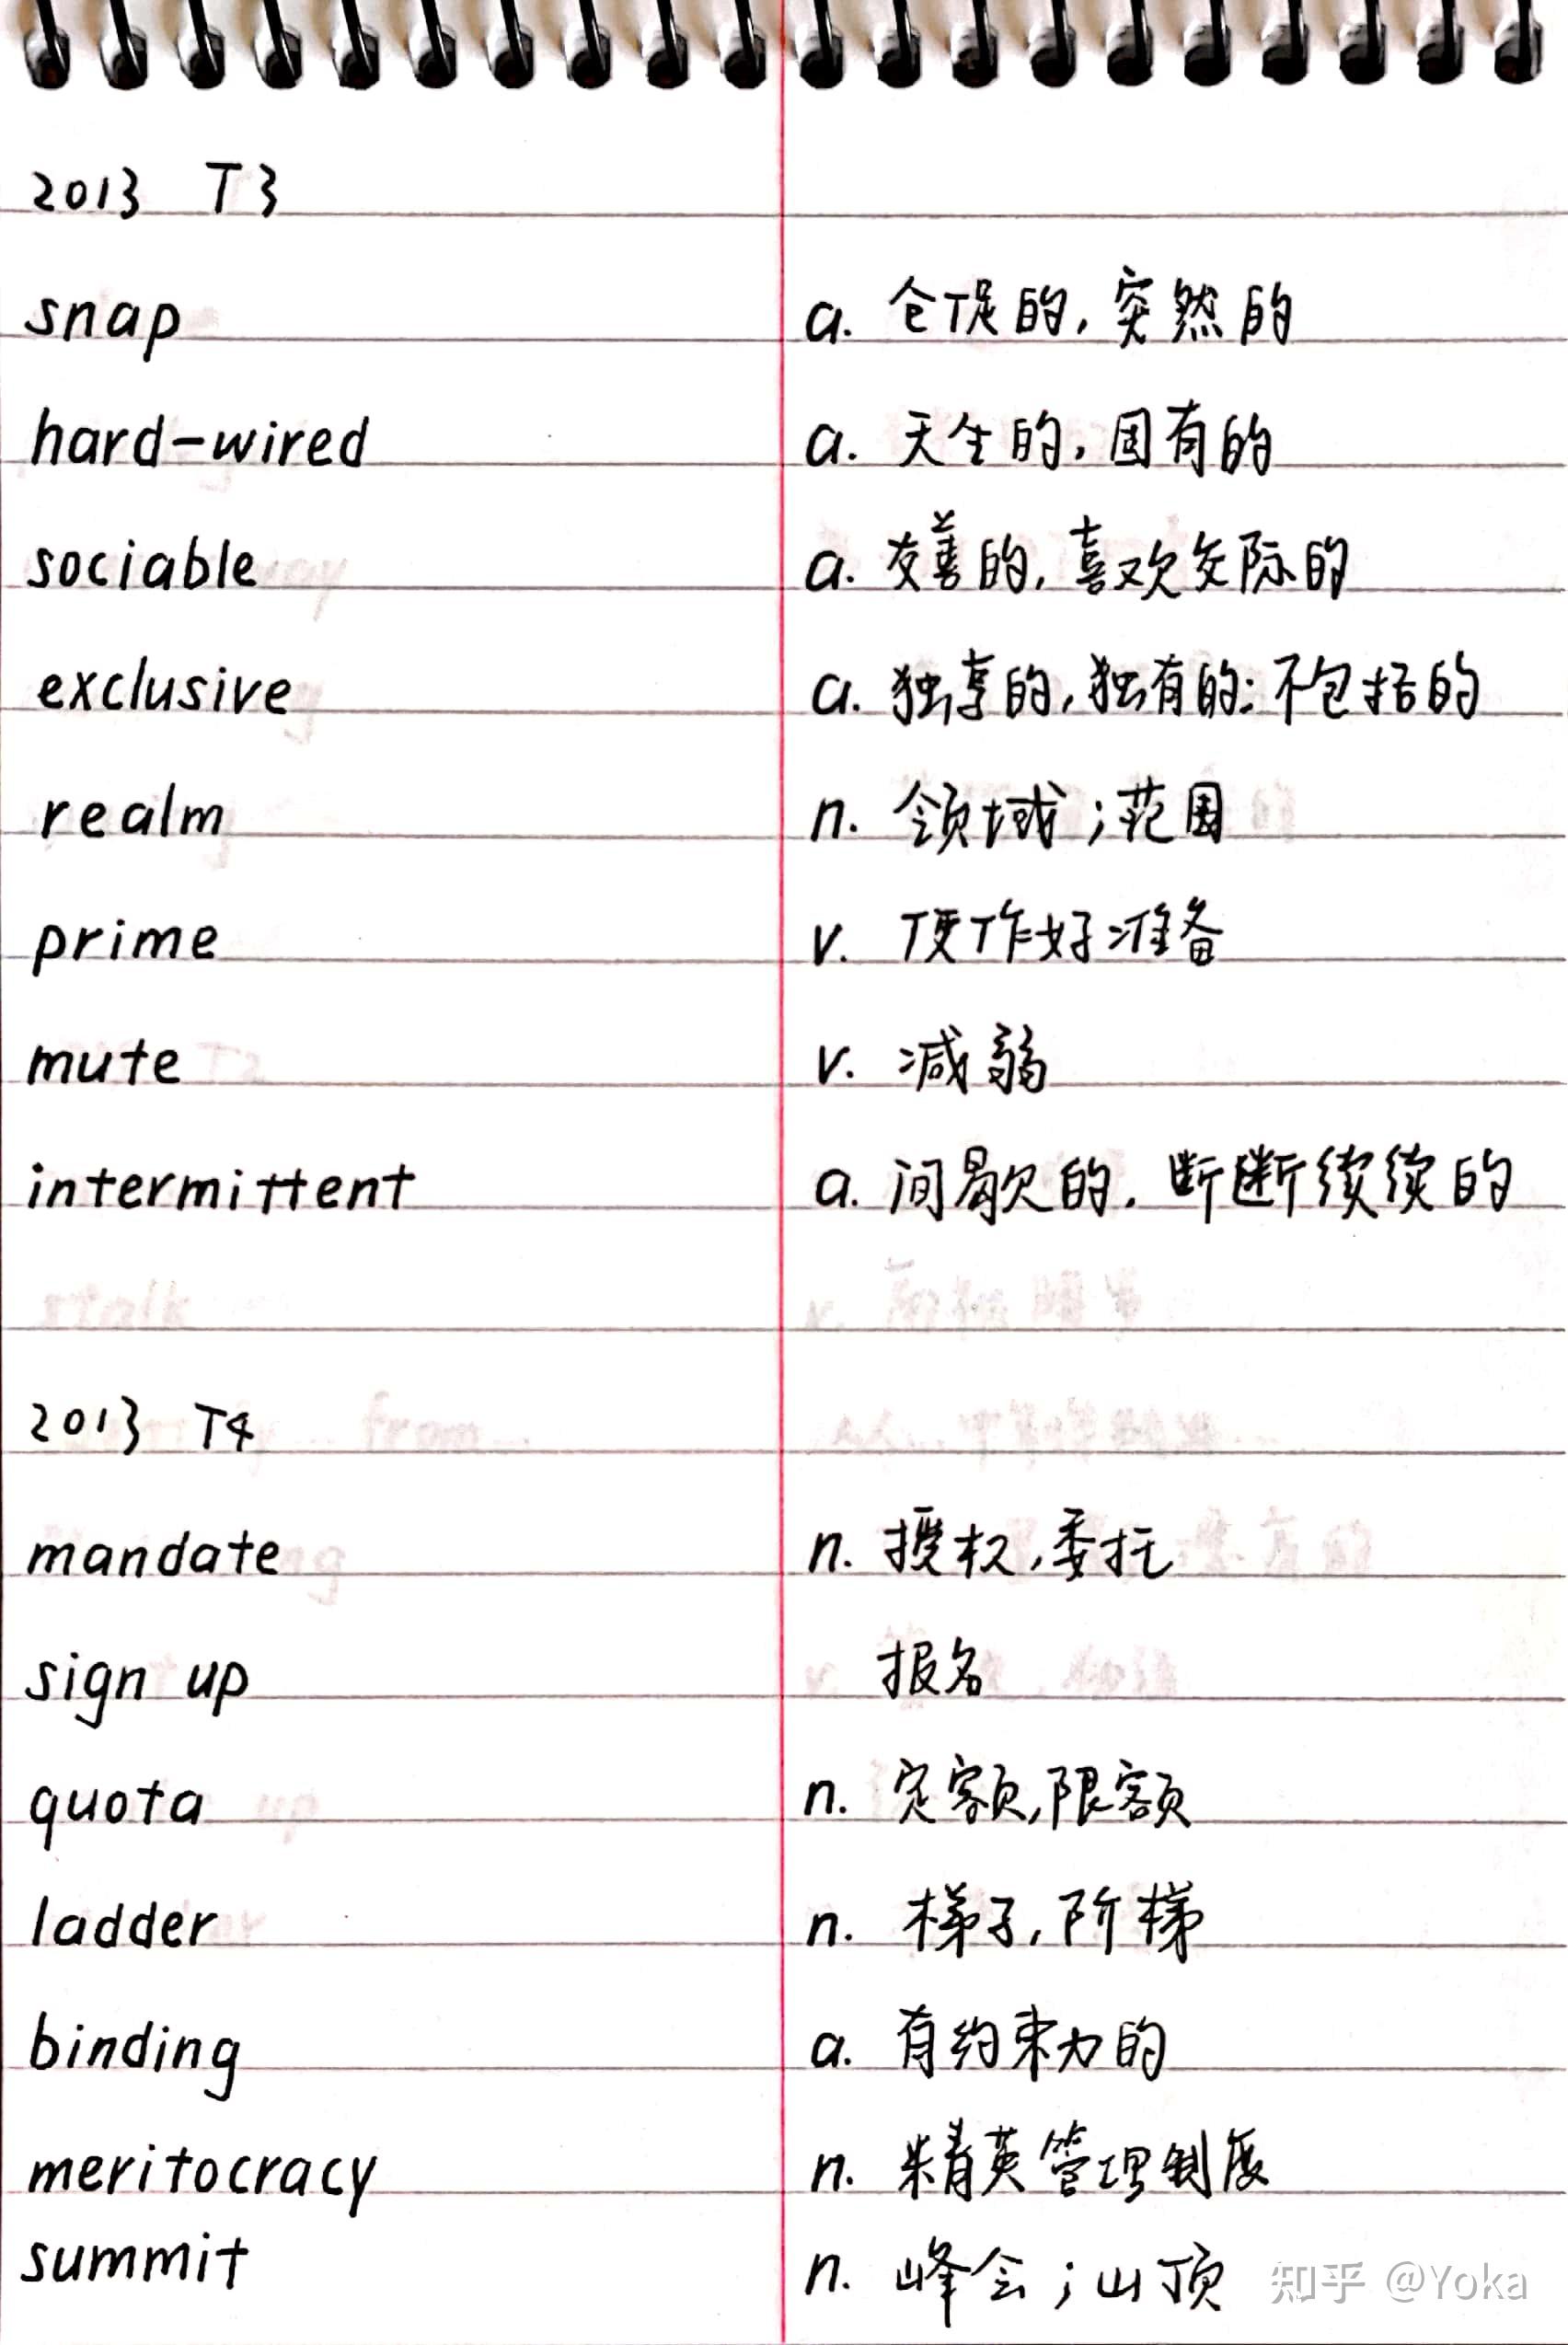 2013 T3
snap a. 仓促的,突然的
hard-wired a. 天生的,固有的
sociable a. 友善的,喜欢交际的
exclusive a. 独享的,独有的;不包括的
realm n. 领域;范围
prime v. 使作好准备
mute v. 减弱
intermittent a. 间歇的,断断续续的
2013 T4
mandate n. 授权,委托
sign up 报名
quota n. 定额,限额
ladder n. 梯子,阶梯
binding a. 有约束力的
meritocracy n. 精英管理制度
summit n. 峰会;山顶
知乎 @Yoka